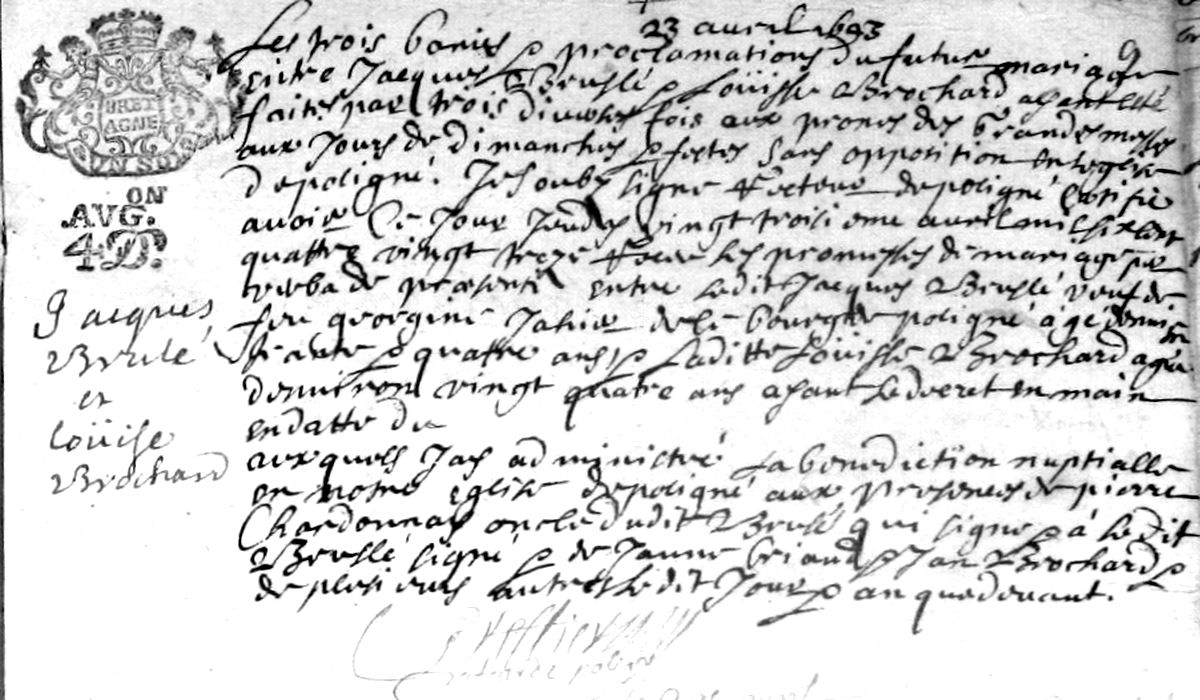 23 avril 1693
Les trois banies & proclamations du futur mariage
entre Jacques Bruslé & Loüisse Brochard ayant esté
faites par trois diverses fois aux prones des Grandes messes
aux Jours de dimanches & festes sans opposition en leglise
de poligné. Je soubs signe Recteur de poligné Certifie
avoir Ce Jour Jeudy vingt troisieme avril mil six cent
quattre vingt treze Receu les promesses de mariage par
verba de præsenti entre ledit Jacques Bruslé veuf de
feu georgine de le bourg de poligné âgé denviron
trante & quatre ans & Laditte Loüisse Brochard agée
denviron vingt quatre ans ayant le decret en main
en datte du
aux quels Jay administré La benediction nuptialle
en Notre Eglise de poligné aux presences de pierre
Chardonnay oncle dudit Bruslé qui signe & à Ledit
Bruslé signé & de Janne briand & Jan Brochard &
de plesieurs autres Ledit Jour & an que devant.
BRET
AGNE
UN SOL
ON
AVG.
4D.
Jacques
Brulé
et
Loüise
Brochard